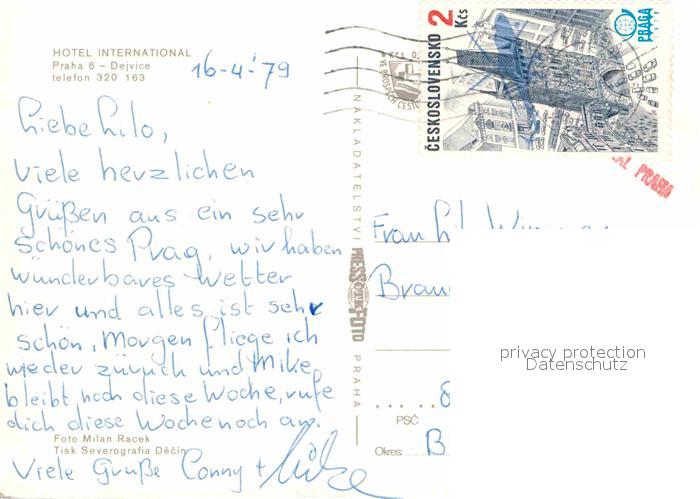 HOTEL INTERNATIONAL
Praha 6 – Dejvice
telefon 320 163
16-4-'79
Liebe Lilo,
viele herzlichen
Grüßen aus ein sehr
schönes Prag, wir haben
wünderbares Wetter
hier und alles ist sehr
schön, Morgen fliege ich
wieder zürück und Mike
bleibt noch diese Woche, rufe
dich diese Woche noch an.
Foto Milan Racek
Tisk Severografia Děčín
Viele Gruße Conny +
NAKLADATELSTVÍ PRESSFOTO PRAHA
ČESKOSLOVENSKO
2 Kčs
PRAGA
PRAHA
Frau
Brau
8
PSČ
Okres: B
privacy protection
Datenschutz